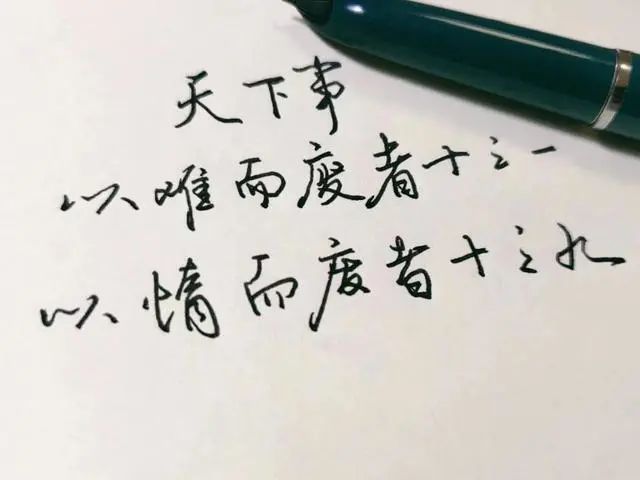 天下事
以难而废者十之一
以惰而废者十之九